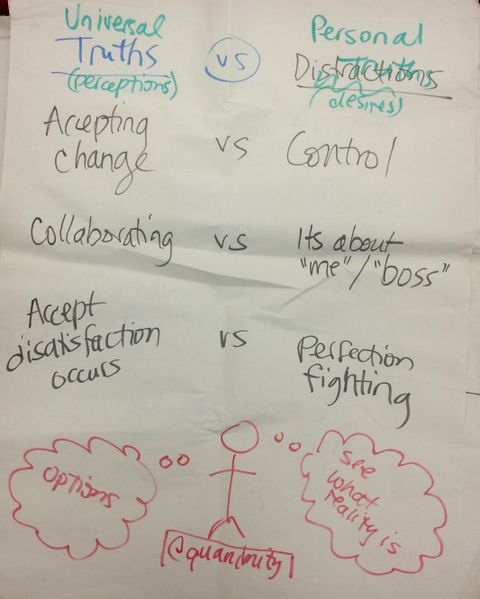 Universal
Truths
(perceptions)
vs
Personal
Distractions
(desires)
Accepting
change
vs
Control
Collaborating
vs
Its about
"me"/"boss"
Accept
disatisfaction
occurs
vs
Perfection
fighting
options
see
what
reality is